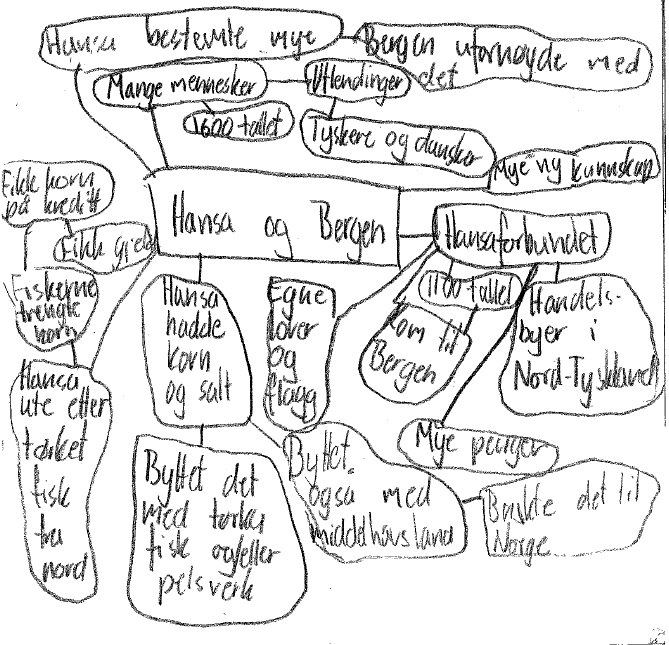 Hansa bestemte mye
Bergen utornøyde med
det
Mange mennesker
Utlendinger
1600 tallet
Tyskere og dansker
Mye ny kunnskap
Fikk korn
på kreditt
Fikk gjeld
Hansa og Bergen
Hansaforbundet
Fiskerne
trengte
korn
Hansa
hadde
korn
og salt
Egne
lover
og
flagg
1100 tallet
Kom til
Bergen
Handels-
byer i
Nord-Tyskland
Hansa
ute etter
tørket
fisk
fra
nord
Mye penger
Byttet det
med tørka
fisk og/eller
pelsverk
Byttet
også med
middelhavsland
Brukte det til
Norge